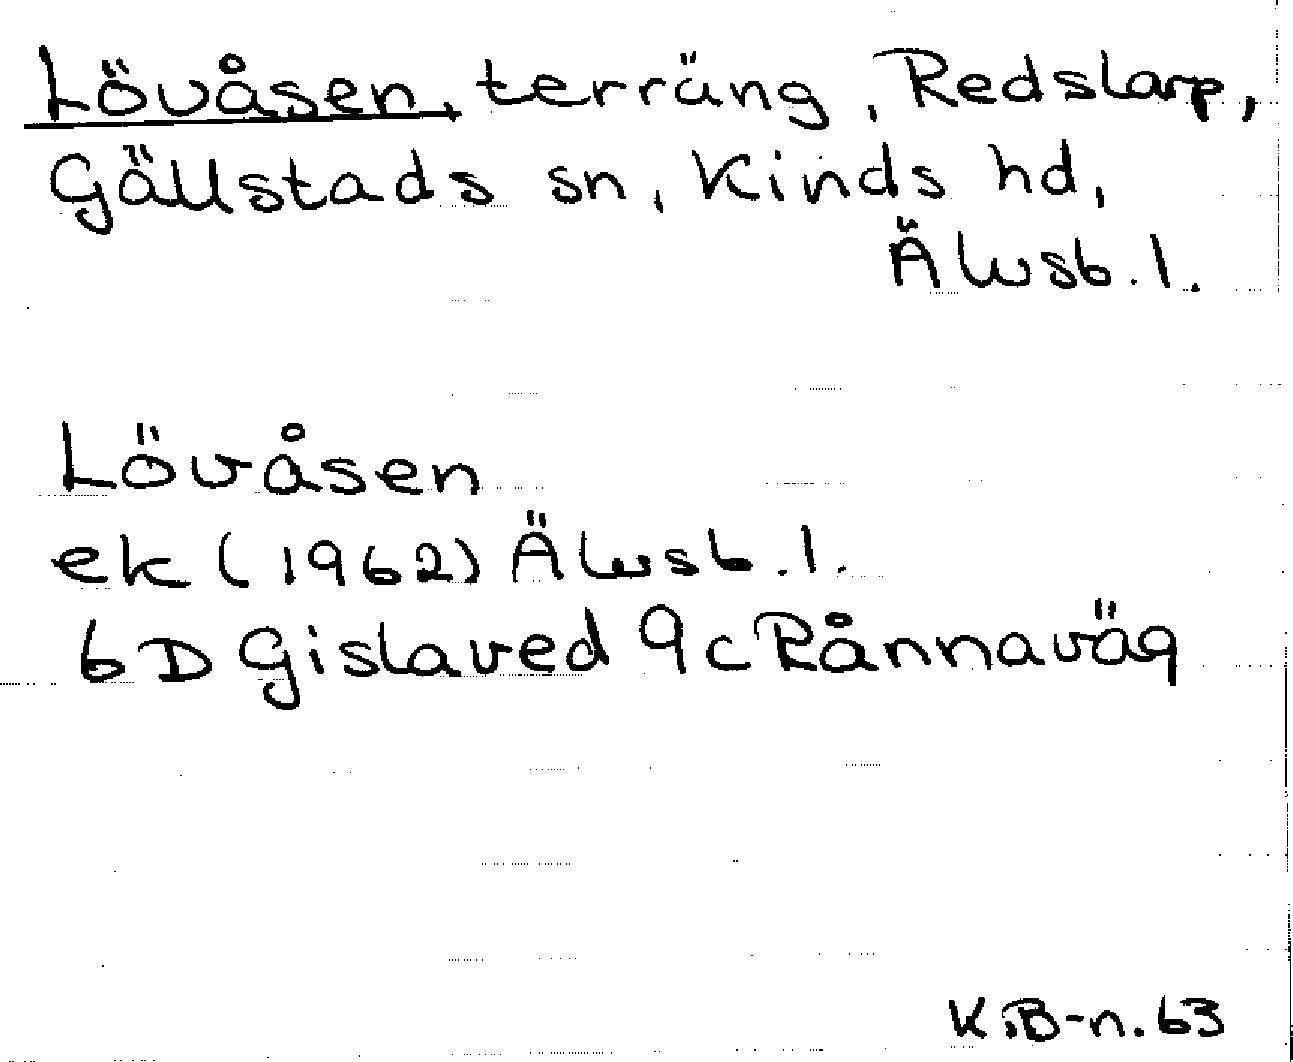 Lövåsen, terräng, Redslarp,
Gällstads sn, Kinds hd,
Älvsb. l.
Lövåsen
ek (1962) Älvsb. l.
6D Gislaved 9c Rånnaväg
K.B-n. 63